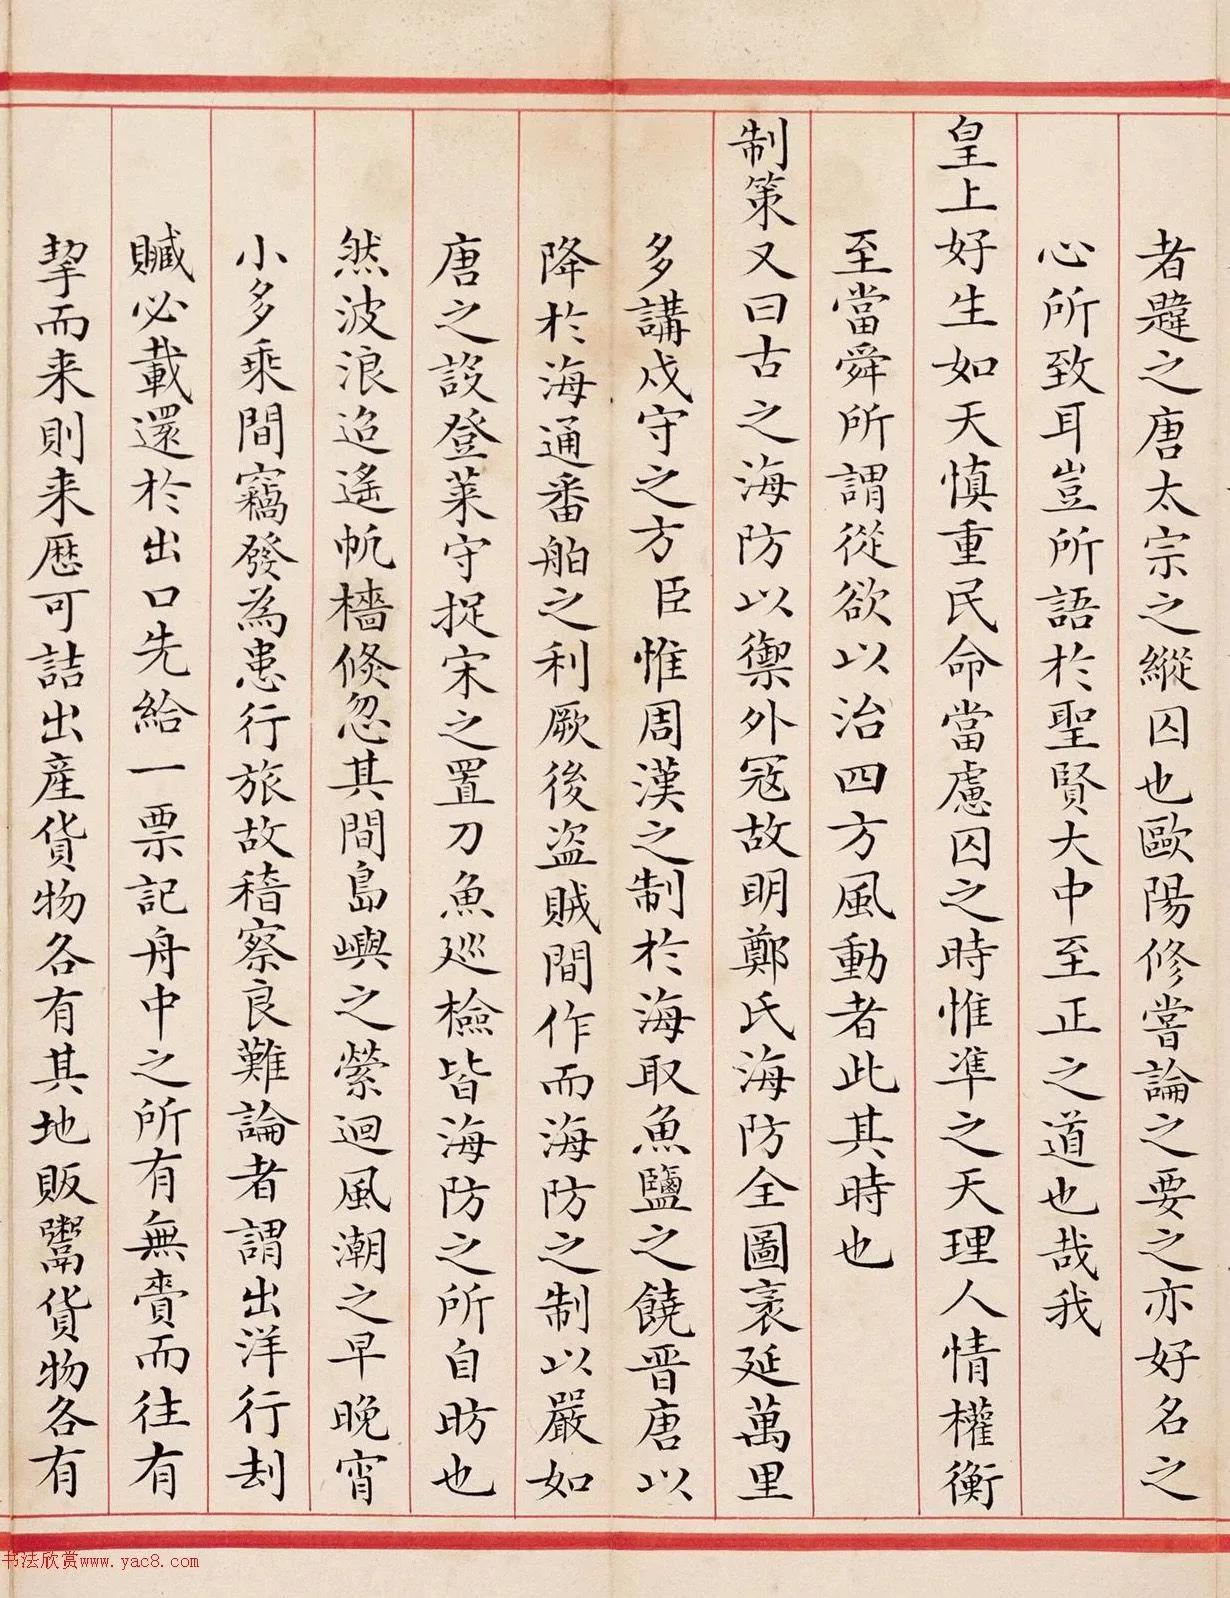 者韙之唐太宗之縱囚也歐陽修嘗論之要之亦好名之
心所致耳豈所語於聖賢大中至正之道也哉我
皇上好生如天慎重民命當慮囚之時惟準之天理人情權衡
至當舜所謂從欲以治四方風動者此其時也
制策又曰古之海防以禦外寇故明鄭氏海防全圖袤延萬里
多講戍守之方臣惟周漢之制於海取魚鹽之饒晉唐以
降於海通番舶之利厥後盜賊間作而海防之制以嚴如
唐之設登萊守捉宋之置刀魚巡檢皆海防之所自昉也
然波浪迢遙帆檣倏忽其間島嶼之縈迴風潮之早晚宵
小多乘間竊發為患行旅故稽察良難論者謂出洋行刦
贓必載還於出口先給一票記舟中之所有無賷而往有
挈而来則来歷可詰出産貨物各有其地販鬻貨物各有
书法欣赏www.yac8.com